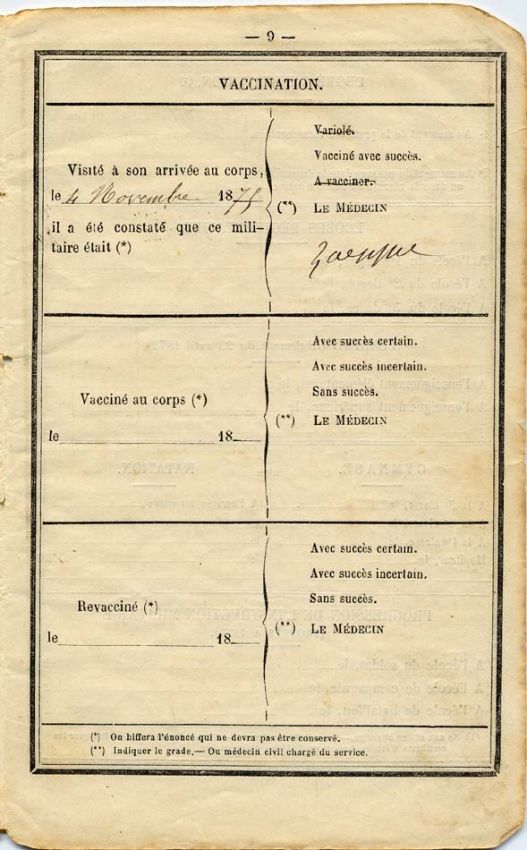 — 9 —
VACCINATION.
Visité à son arrivée au corps,
le 4 Novembre 1875
il a été constaté que ce mili-
taire était (*)
Variolé.
Vacciné avec succès.
A vacciner.
(**) LE MÉDECIN
Vacciné au corps (*)
le 18
Avec succès certain.
Avec succès incertain.
Sans succès.
(**) LE MÉDECIN
Revacciné (*)
le 18
Avec succès certain.
Avec succès incertain.
Sans succès.
(**) LE MÉDECIN
(*) On biffera l'énoncé qui ne devra pas être conservé.
(**) Indiquer le grade.— Ou médecin civil chargé du service.